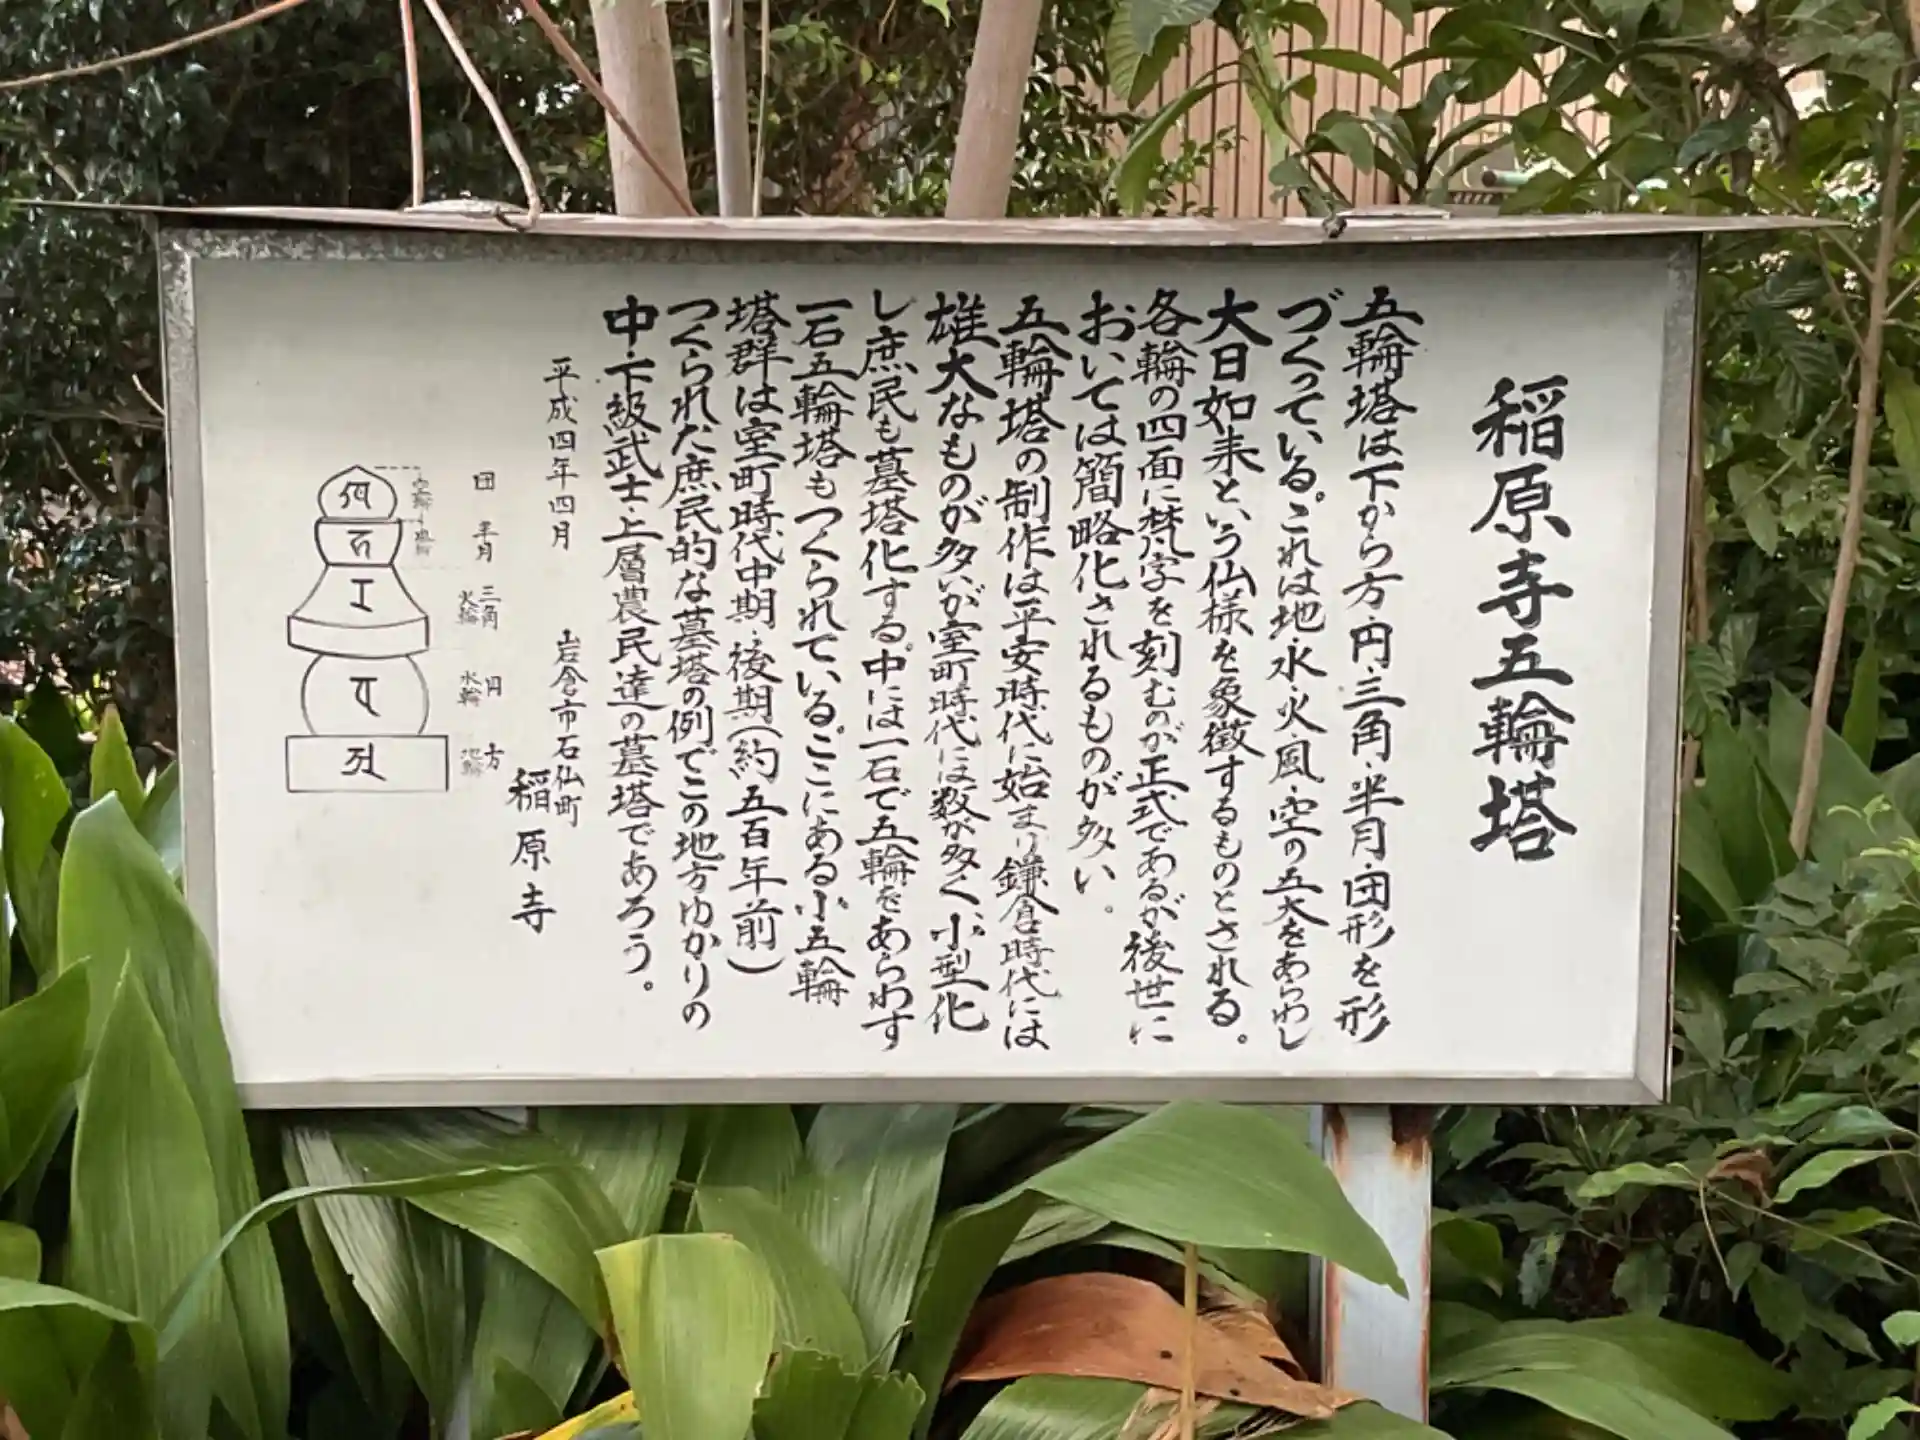 稲原寺五輪塔
五輪塔は下から方・円・三角・半月・団形を形
づくっている。これは地・水・火・風・空の五大をあらわし
大日如来という仏様を象徴するものとされる。
各輪の四面に梵字を刻むのが正式であるが後世に
おいては簡略化されるものが多い。
五輪塔の制作は平安時代に始まり鎌倉時代には
雄大なものが多いが室町時代には数が多く、小型化
し庶民も墓塔化する。中には一石で五輪をあらわす
一石五輪塔もつくられている。ここにある小五輪
塔群は室町時代中期・後期(約五百年前)
つくられた庶民的な墓塔の例でこの地方ゆかりの
中・下級武士・上層農民達の墓塔であろう。
平成四年四月
岩倉市石仏町
稲原寺
団
半月
三角
火輪
円
水輪
方
地輪
空輪